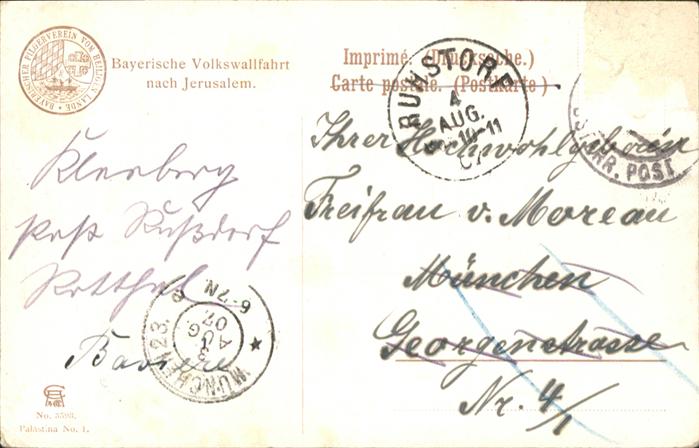 BAYERISCHER PILGERVEREIN VOM HEILIGEN LANDE
Bayerische Volkswallfahrt
nach Jerusalem.
Imprimé. (Drucksache.)
Carte postale. (Postkarte)
RUHSTORF
4
AUG.
10-11
07
ÖSTERR. POST
Ihrer Hochwohlgeboren
Freifrau v. Moreau
München
Georgenstrasse
Nr. 4/1
Kleeberg
Post Rußdorf
Rotthal
Bavière
MÜNCHEN 23.
3
AUG.
07
6-7N.
No. 3598.
Palästina No. 1.